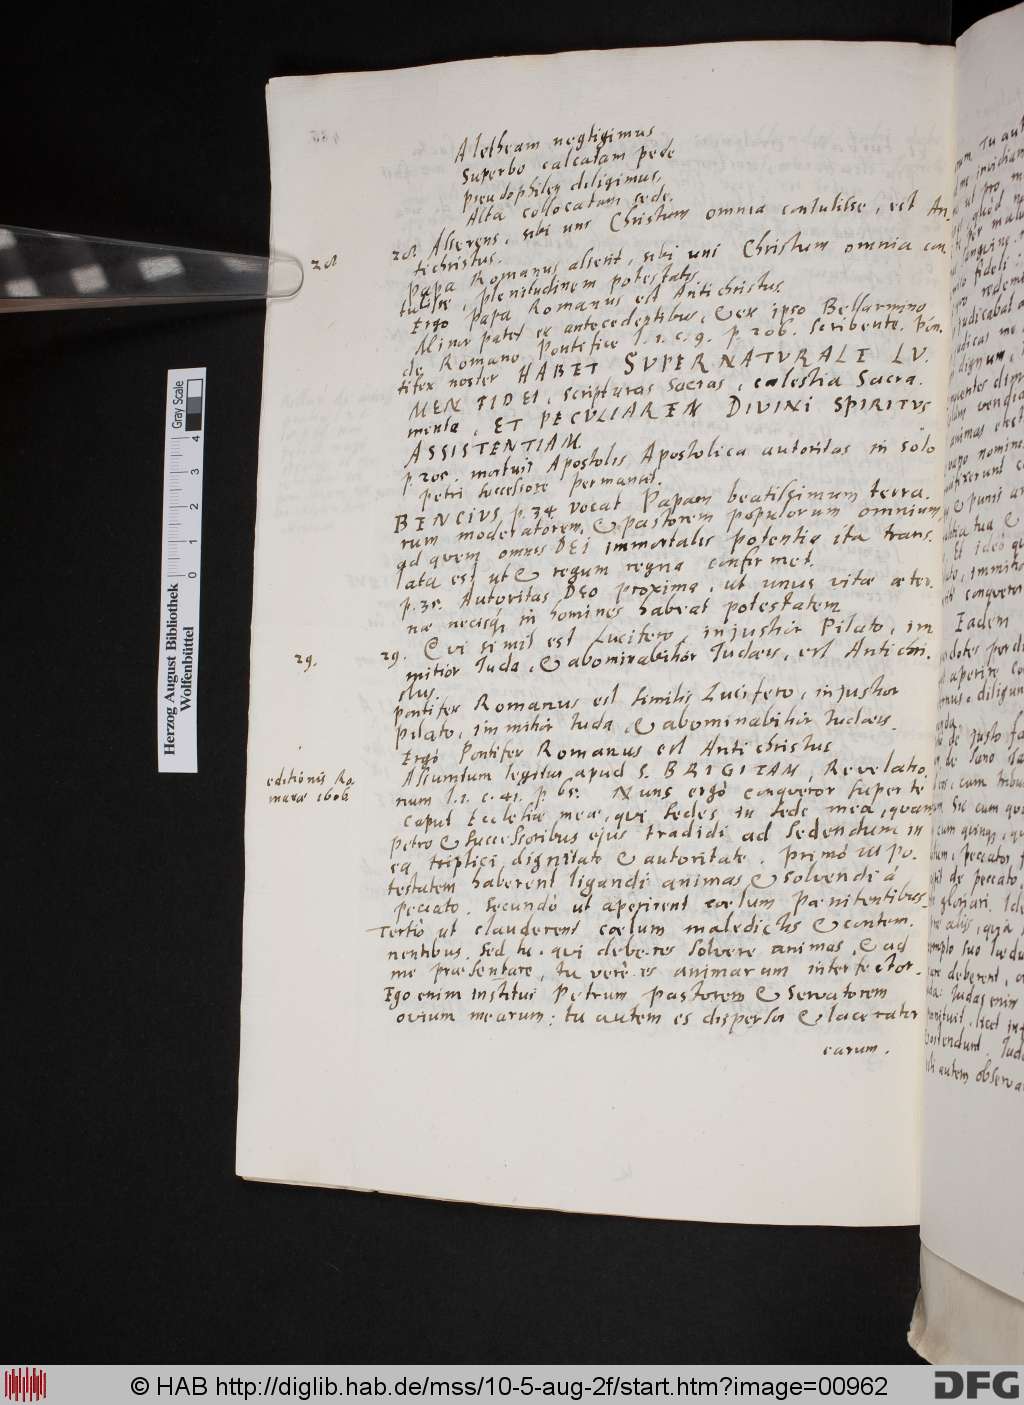 Aletheam negligimus
Superbo calcatam pede
pseudophilen diligimus,
Alta collocatam sede.
28
28 Asserens, sibi uni Christum omnia contulisse, est An-
tichristus.
Papa Romanus asserit, sibi uni Christum omnia con-
tulisse, plenitudinem potestatis.
Ergo Papa Romanus est Antichristus.
Minor patet ex antecedentibus, & ex ipso Bellarmino
de Romano Pontifice l. 1. c. 9. p. 206. scribente. Pon-
tifex noster HABET SUPERNATURALE LU-
MEN FIDEI, scripturas sacras, cælestia Sacra-
menta, ET PECULIAREM DIVINI SPIRITUS
ASSISTENTIAM.
p. 205. mortuis Apostolis Apostolica autoritas in solo
petri successore permansit.
BENCIUS p. 34 vocat Papam beatissimum terra-
rum moderatorem, & pastorem populorum omnium,
ad quem omnis DEI immortalis potentia ita trans-
lata est ut & regum regna confirmet.
p. 35. Autoritas DEo proxima, ut unus vitæ æter-
næ necisq; in homines habeat potestatem
29.
29. Qvi simil est Lucifero, injustior Pilato, im-
mitior Juda, & abominabilior Judæis, est Antichri-
stus.
Pontifex Romanus est similis Lucifero, injustior
Pilato, immitior Juda, & abominabilior Judæis.
Ergò Pontifex Romanus est Antichristus
editionis Ro-
manæ 1606.
Assumtum legitur apud S. BRIGITAM, Revelatio-
num l. 1. c. 41. p. 65. Nunc ergò conqueror super te
caput Ecclesiæ meæ, qui sedes in sede mea, quam
petro & successoribus ejus tradidi ad sedendum in
ea triplici dignitate & autoritate. Primò ut po-
testatem haberent ligandi animas & solvendi á
peccato. Secundò ut aperirent cœlum pænitentibus.
Tertiò ut clauderent cœlum maledictis & contem-
nentibus. Sed tu. qui deberes solvere animas, & ad
me præsentare, tu verè es animarum interfector.
Ego enim institui Petrum pastorem & servatorem
ovium mearum: tu autem es dispersor & lacerator
earum.
Herzog August Bibliothek
Wolfenbüttel
0 1 2 3 4
Gray Scale
© HAB http://diglib.hab.de/mss/10-5-aug-2f/start.htm?image=00962
DFG